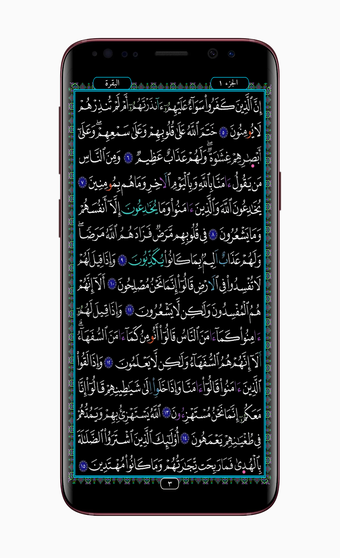 الجزء ١
البقرة
إِنَّ الَّذِينَ كَفَرُوا سَوَاءٌ عَلَيْهِمْ ءَأَنذَرْتَهُمْ أَمْ لَمْ تُنذِرْهُمْ
لَا يُؤْمِنُونَ ٥ خَتَمَ اللَّهُ عَلَىٰ قُلُوبِهِمْ وَعَلَىٰ سَمْعِهِمْ وَعَلَىٰ
أَبْصَٰرِهِمْ غِشَٰوَةٌ وَلَهُمْ عَذَابٌ عَظِيمٌ ٦ وَمِنَ النَّاسِ
مَن يَقُولُ ءَامَنَّا بِاللَّهِ وَبِالْيَوْمِ الْآخِرِ وَمَا هُم بِمُؤْمِنِينَ ٧
يُخَٰدِعُونَ اللَّهَ وَالَّذِينَ ءَامَنُوا وَمَا يُخَٰدِعُونَ إِلَّا أَنفُسَهُمْ
وَمَا يَشْعُرُونَ ٨ فِي قُلُوبِهِم مَّرَضٌ فَزَادَهُمُ اللَّهُ مَرَضًا
وَلَهُمْ عَذَابٌ أَلِيمٌ بِمَا كَانُوا يُكَذِّبُونَ ٩ وَإِذَا قِيلَ لَهُمْ
لَا تُفْسِدُوا فِي الْأَرْضِ قَالُوا إِنَّمَا نَحْنُ مُصْلِحُونَ ١٠ أَلَا إِنَّهُمْ
هُمُ الْمُفْسِدُونَ وَلَٰكِن لَّا يَشْعُرُونَ ١١ وَإِذَا قِيلَ لَهُمْ
ءَامِنُوا كَمَا ءَامَنَ النَّاسُ قَالُوا أَنُؤْمِنُ كَمَا ءَامَنَ السُّفَهَاءُ
أَلَا إِنَّهُمْ هُمُ السُّفَهَاءُ وَلَٰكِن لَّا يَعْلَمُونَ ١٢ وَإِذَا لَقُوا
الَّذِينَ ءَامَنُوا قَالُوا ءَامَنَّا وَإِذَا خَلَوْا إِلَىٰ شَيَٰطِينِهِمْ قَالُوا إِنَّا
مَعَكُمْ إِنَّمَا نَحْنُ مُسْتَهْزِءُونَ ١٣ اللَّهُ يَسْتَهْزِئُ بِهِمْ وَيَمُدُّهُمْ
فِي طُغْيَٰنِهِمْ يَعْمَهُونَ ١٤ أُولَٰئِكَ الَّذِينَ اشْتَرَوُا الضَّلَٰلَةَ
بِالْهُدَىٰ فَمَا رَبِحَت تِّجَٰرَتُهُمْ وَمَا كَانُوا مُهْتَدِينَ ١٥
٣